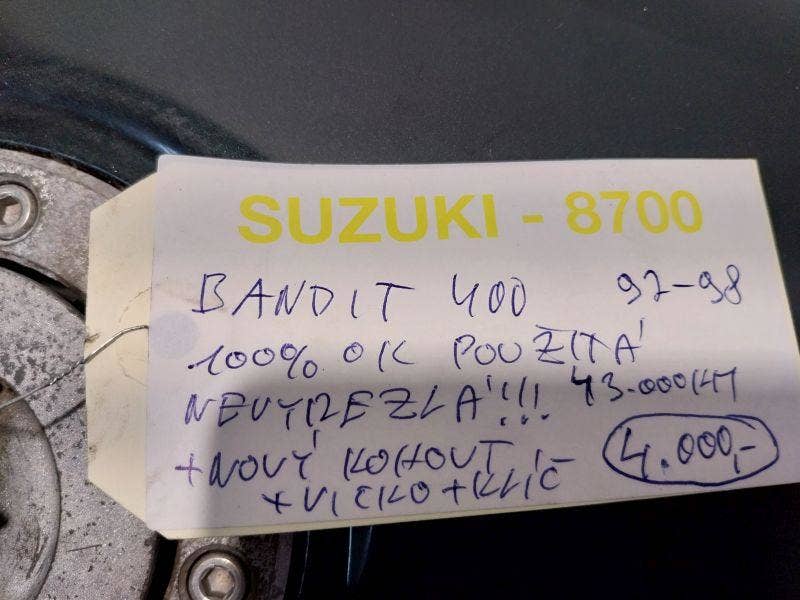 SUZUKI - 8700
BANDIT 400 97-98
100% OK POUŽITÁ
NEVYREZLÁ!!! 43.000KM
+NOVÝ KOHOUT 4.000,-
+VIČKO +KLIČ